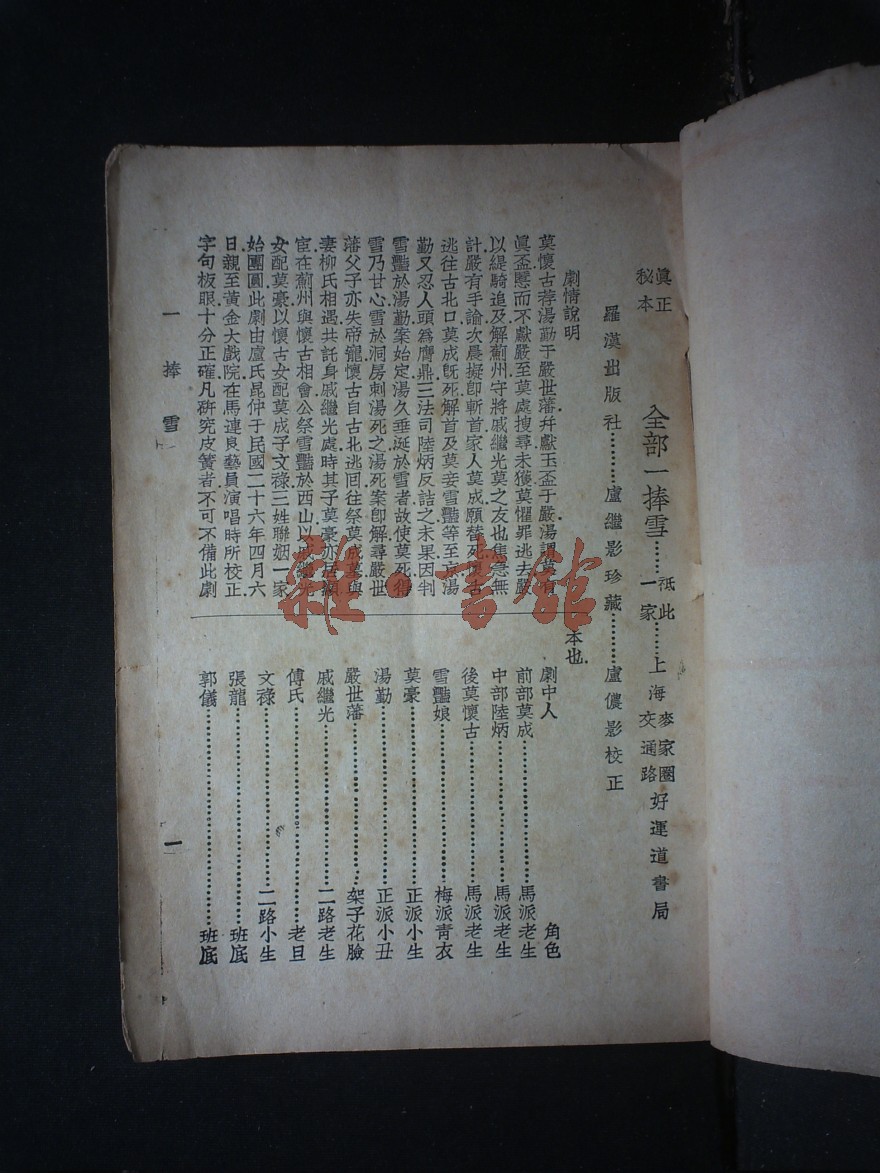 眞正秘本
全部一捧雪……祗此一家……上海麥家圈交通路好運道書局
羅漢出版社…………盧繼影珍藏…………盧儂影校正
劇情說明
莫懷古荐湯勤于嚴世藩幷獻玉盃于嚴湯謂莫有
眞盃懸而不獻嚴至莫處搜尋未獲莫懼罪逃去嚴
以緹騎追及解薊州守將戚繼光莫之友也焦急無
計嚴有手諭次晨擬卽斬首家人莫成願替死
逃往古北口莫成旣死解首及莫妾雪豔等至京湯
勤又忍人頭爲贋鼎三法司陸炳反詰之未果因判
雪豔於湯勤案始定湯久垂涎於雪者故使莫死
雪乃甘心雪於洞房刺湯死之湯死案卽解尋嚴世
藩父子亦失帝寵懷古自古北逃回往祭莫成墓與
妻柳氏相遇共託身戚繼光處時其子莫豪亦居顯
宦在薊州與懷古相會公祭雪豔於西山以戚繼光
女配莫豪以懷古女配莫成子文祿三姓聯姻一家
始團圓此劇由盧氏昆仲于民國二十六年四月六
日親至黃金大戲院在馬連良藝員演唱時所校正
字句板眼十分正確凡硏究皮簧者不可不備此劇
本也
劇中人　角色
前部莫成…………馬派老生
中部陸炳…………馬派老生
後莫懷古…………馬派老生
雪豔娘…………梅派青衣
莫豪…………正派小生
湯勤…………正派小丑
嚴世藩…………架子花臉
戚繼光…………二路老生
傅氏…………老旦
文祿…………二路小生
張龍…………班底
郭儀…………班底
一捧雪
一
雜·書館